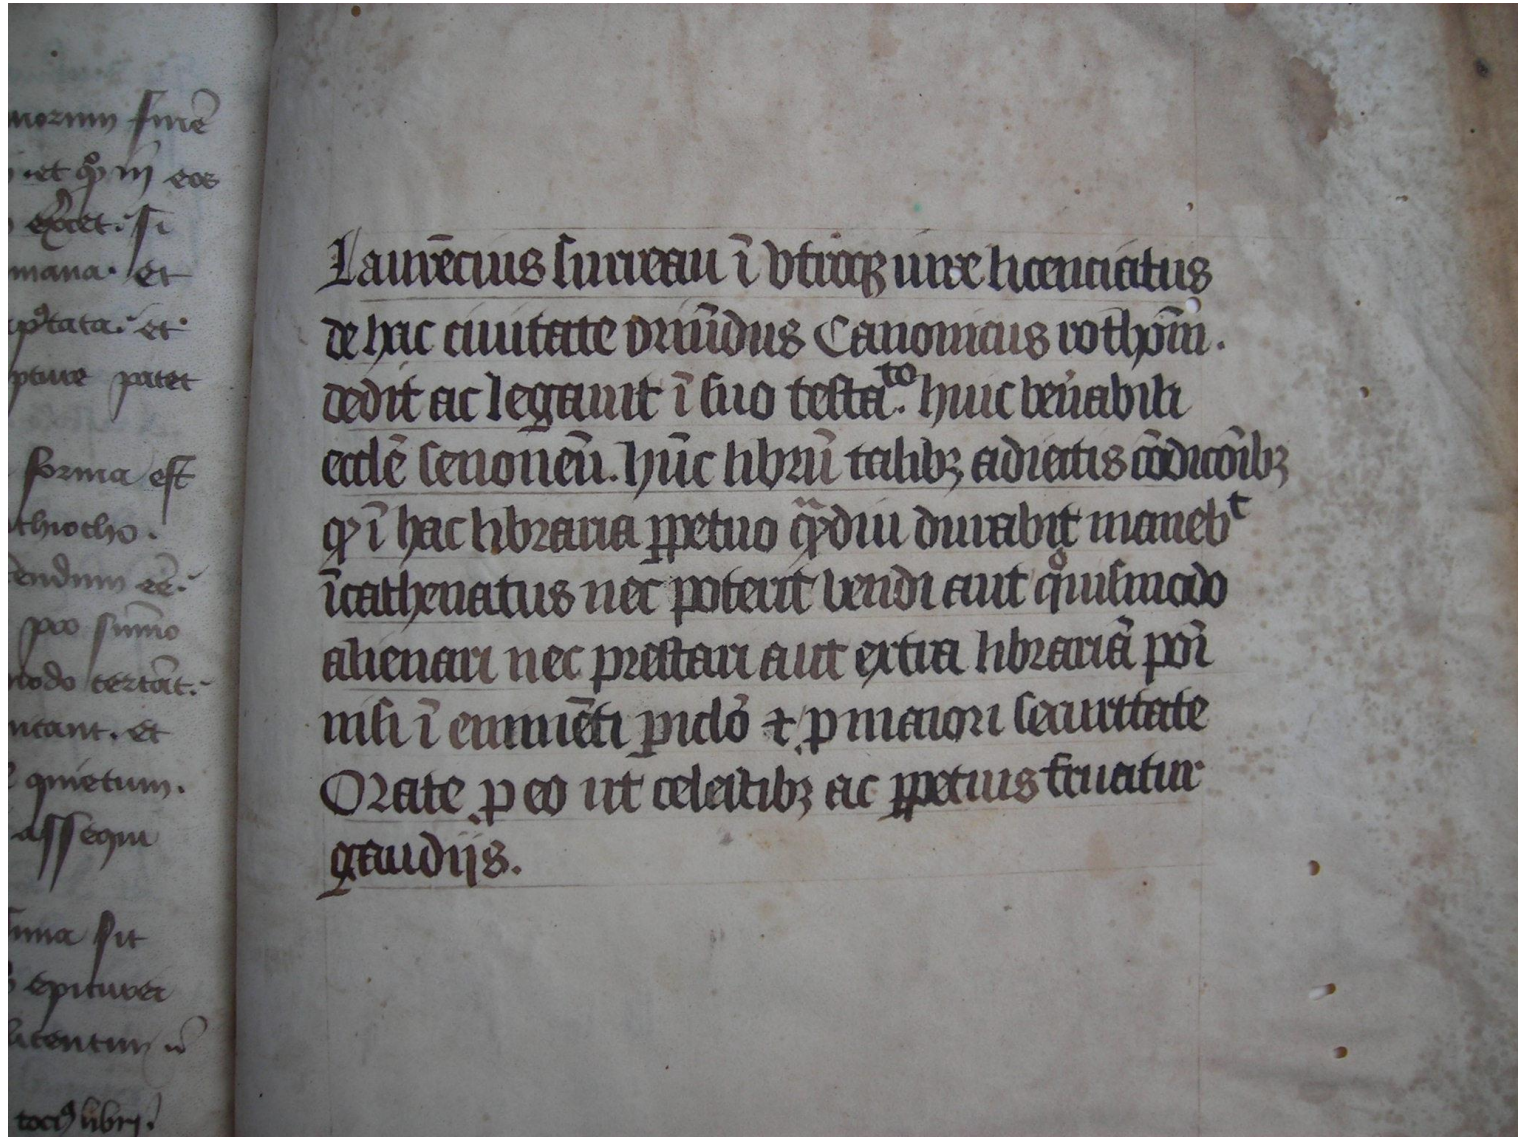 norum finē
et qͦ in eos
exͨcet. si
mana. et
aptata. et
pture patet
forma est
thiotho.
cendum eē.
pro sūmo
modo tertāt.
ntant. et
quietum.
assequi
sit
epicurei
licentium
tociꝰ libri.
Laurēcius surreau ī vtroqꝫ iure licenciatus
de hac ciuitate oriūdus Canonicus rothōm̄.
dedit ac legauit ī suo testaᵗᵒ. huic ven̄abili
eccl̄e senonen̄. hūc librū talibꝫ adiectis cōdicōibꝫ
qꝫ ī hac libraria ꝑpetuo qͣ̄diu durabit manebᵗ
īcathenatus nec poterit vendi aut qͦuismodo
alienari nec prestari aut extra librariā pōi
nisi ī eminēti ꝑiclo᷑ ⁊ ꝓ maiori securitate
Orate ꝓ eo ut celestibꝫ ac ꝑpetuis fruatur
gaudijs.